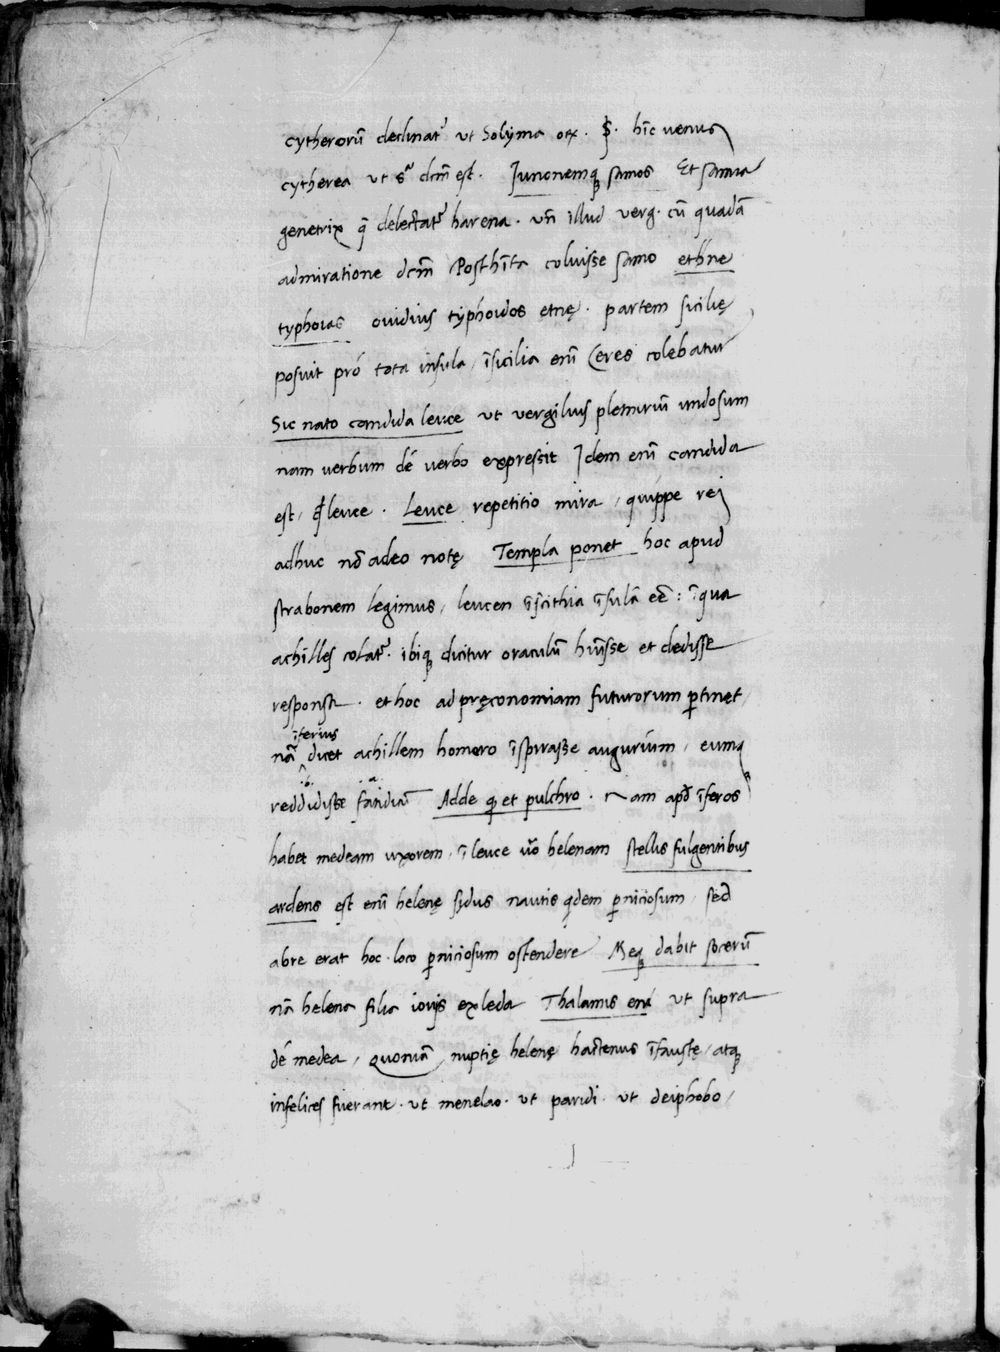 cytherorū declinat᷑ ut Solÿma orꝝ. §. hīc uenus
cytherea ut sᵃ dcm̄ est. Junonemq; samos Et samia
genetrix q̄ delectat᷑ harena. uñ illud uerg. cū quadā
admiratione dcm̄ Posthīta coluisse samo ethne
typhoias ouidius typhoidos etnę. partem sicilię
posuit pró tota insula, ī sicilia enī Ceres colebatur
Sic nato candida leuce ut uergilius plemiriū undosum
nam uerbum dé uerbo expressit Idem enī candida
est, qđ leuce. Leuce repetitio mira, quippe rei
adhuc nō adeo notę Templa ponet hoc apud
strabonem legimus, leucen ī scithia īsulā eē: ī qua
achilles colat᷑. ibiq; dicitur oraculū huisse et dedisse
responsa. et hoc ad pręconomiam futurorum ꝑtinet,
īferius
nā dicet achillem homero īspirasse augurium, eumq;
reddidisse Adde q et pulchro. Nam apđ īferos
habet medeam uxorem, ī leuce uō helenam stellis fulgentibus
ardens est enī helenę sydus nautis qdem ꝑniciosum, sed
abre erat hoc loco ꝑniciosum ostendere Meq; dabit socerū
nā helena filia iouis ex leda Thalamis enī ut supra
dé medea, quoniā nuptię helenę hactenus īfaustę, atq;
infelices fuerant. ut menelao. ut paridi. ut deiphobo,